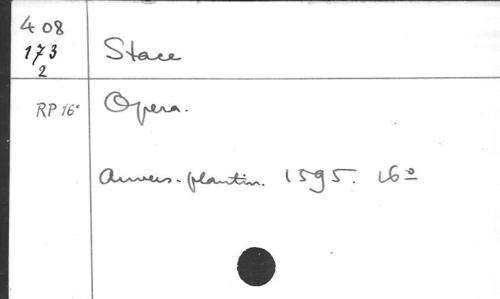 408
173
2
Stace
RP 16°
Opera.
Anvers - plantin. 1595. 16°